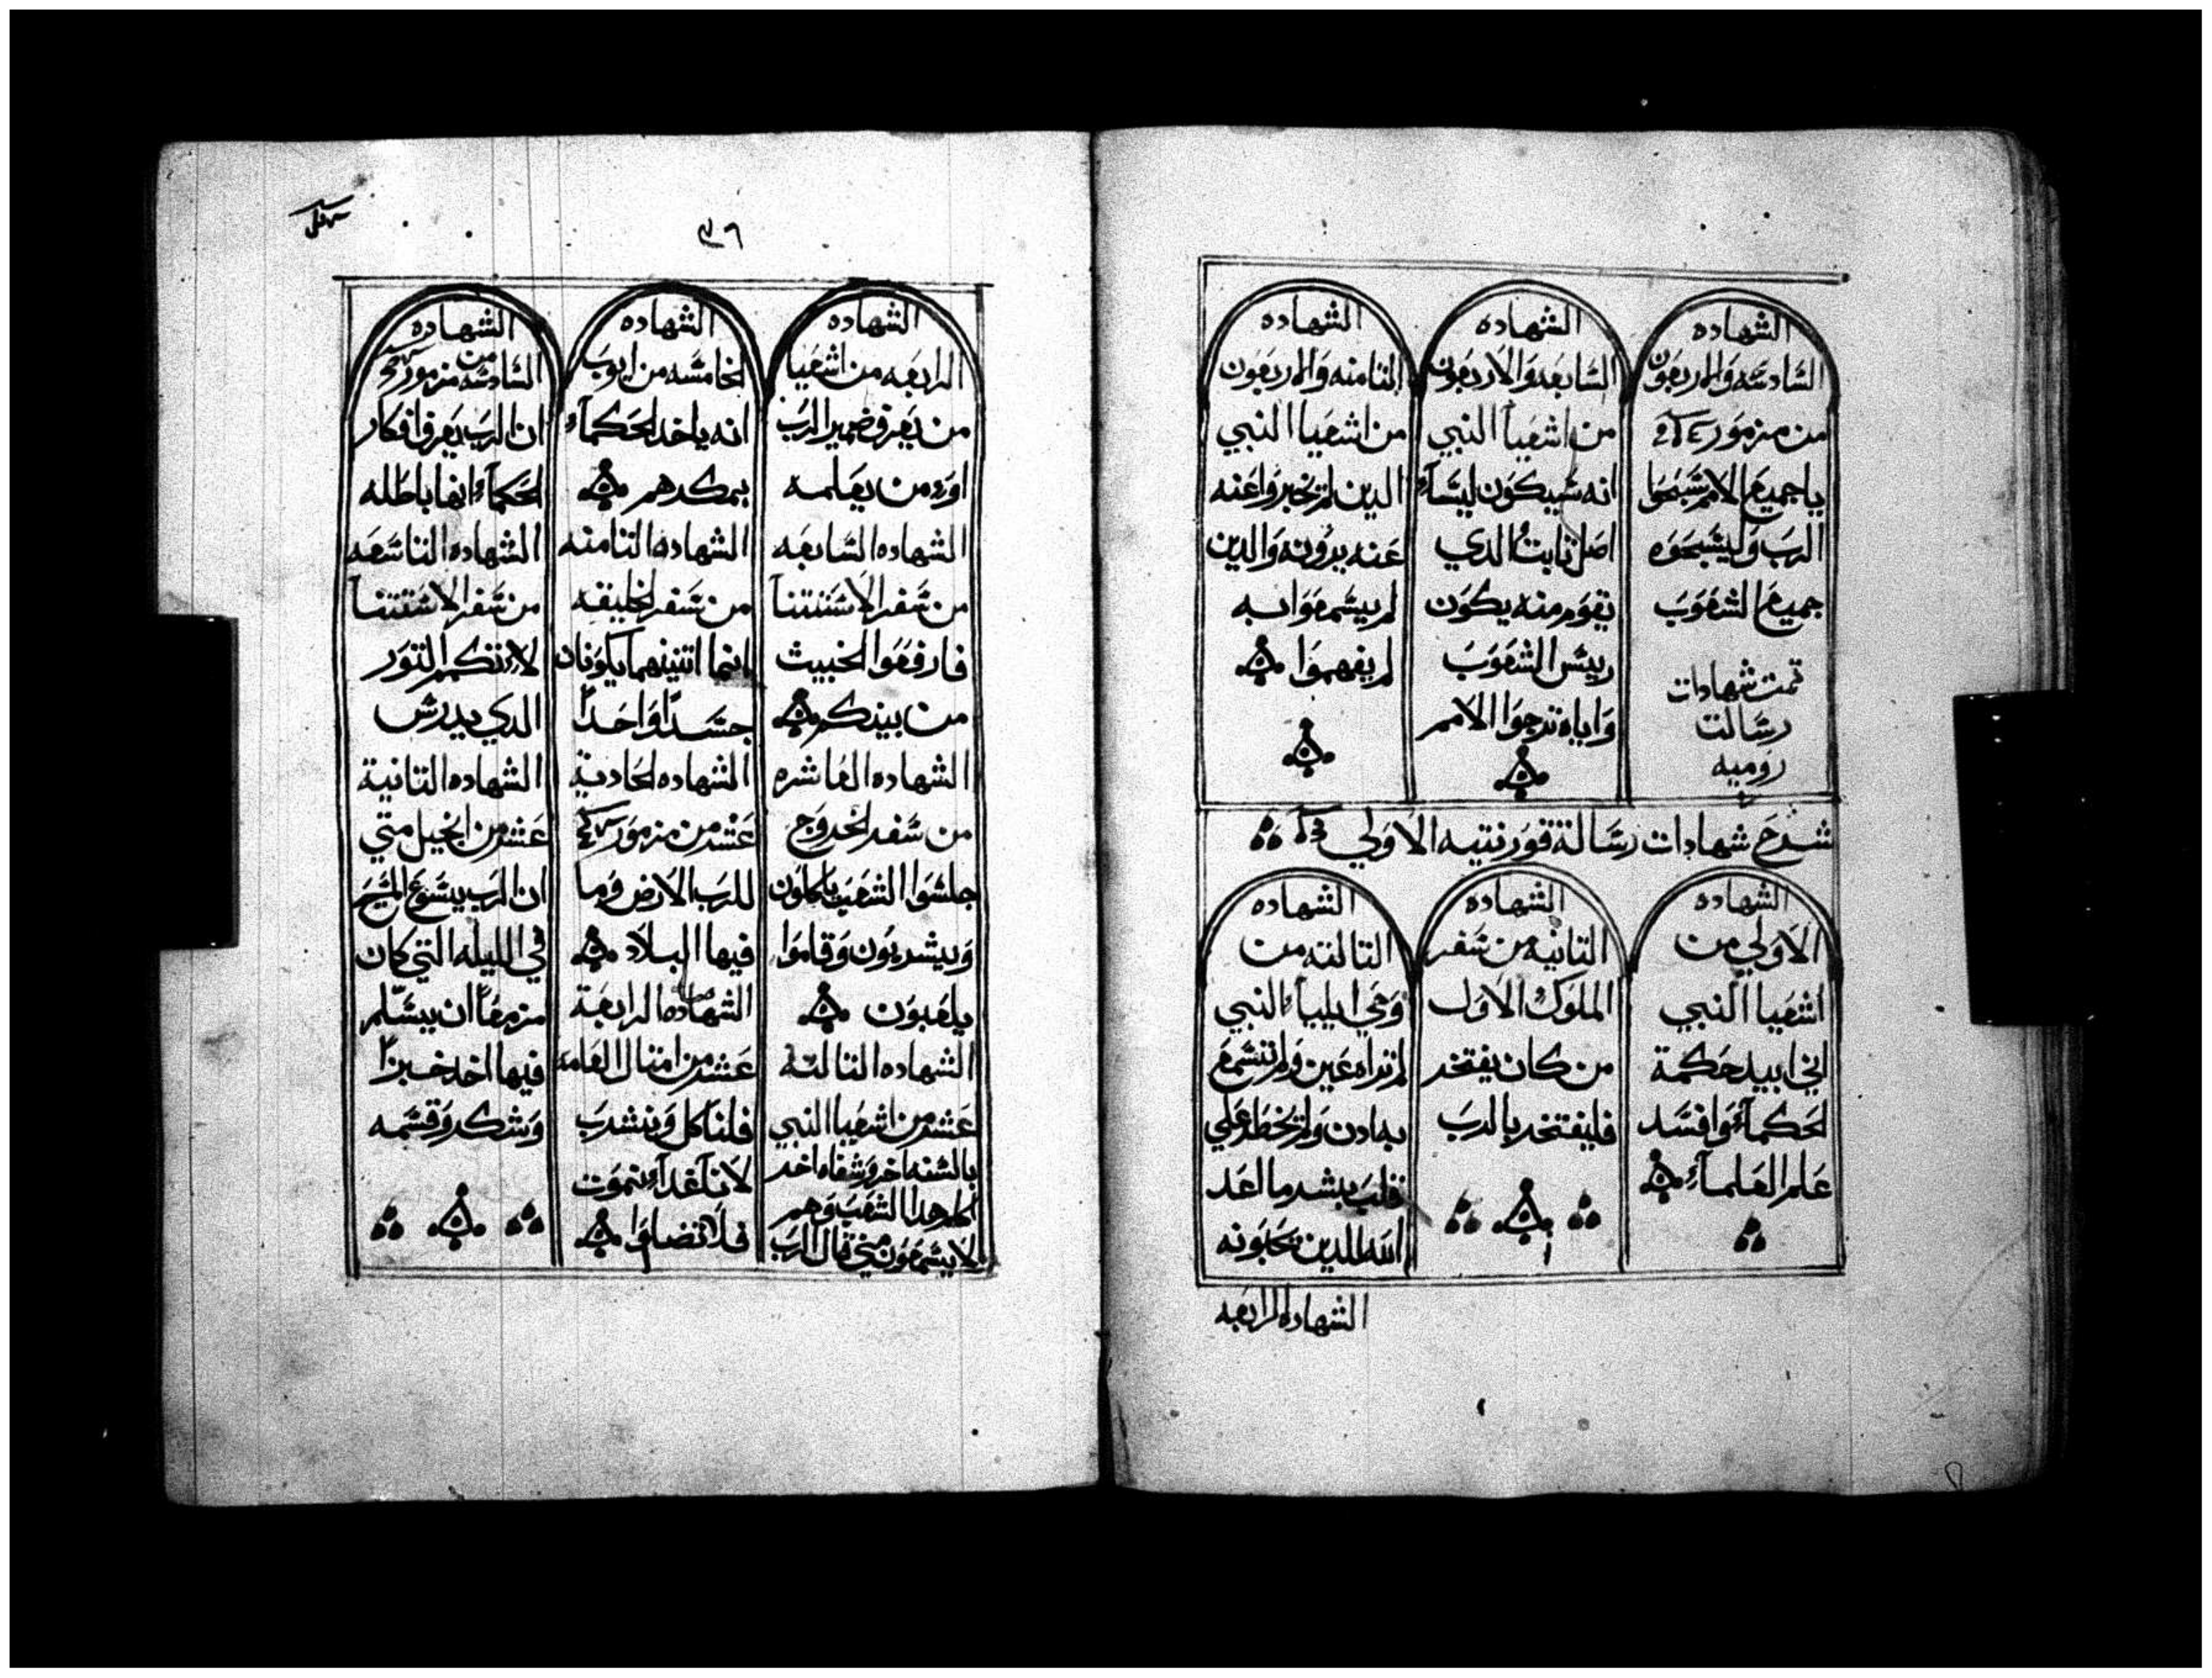 الشهاده
السادسه والاربعون
من مزمور
ياجميع الامم سبحوا
الرب وليسبحوه
جميع الشعوب
تمت شهادات
رسالت
روميه
الشهاده
السابعه والاربعون
من اشعيا النبي
انه سيكون ليسآء
اصل ثابت الدي
يقوم منه يكون
رييس الشعوب
واياه ترجوا الامم
الشهاده
الثامنه والاربعون
من اشعيا النبي
الدين لم يخبروا عنه
عنه يرونه والدين
لم يسمعوا به
لم يفهموا
شرح شهادات رسالة قورنتيه الاولي
الشهاده
الاولي من
اشعيا النبي
اني ابيد حكمة
الحكمآء وافسد
علم العلمآء
الشهاده
التانيه من سفر
الملوك الاول
من كان يفتخر
فليفتخر بالرب
الشهاده
التالته من
وحي ايليآء النبي
لم تراه عين ولم تسمع
به ادن ولم يخطر علي
قلب بشر ما اعد
الله للدين يحبونه
الشهاده الرابعه
٣٦
الشهاده
الرابعه من اشعيا
من يعرف ضمير الرب
اوه من يعلمه
الشهاده السابعه
من سفر الاستتنا
فارفعوا الخبيث
من بينكم
الشهاده العاشره
من سفر الخروج
جلسوا الشعب ياكلون
ويشربون وقاموا
يلعبون
الشهاده التالته
عشر من اشعيا النبي
بالسنه اخر وشفاه اخر
اكلم هدا الشعب وهم
لا يسمعون مني قال الرب
الشهاده
الخامسه من ايوب
انه ياخد الحكمآء
بمكرهم
الشهاده الثامنه
من سفر الخليقه
انهما اتنينهما يكونان
جسدًا واحدًا
الشهاده الحادية
عشر من مزمور
للرب الارض وما
فيها البلاد
الشهاده الرابعة
عشر من امتال العامه
فلناكل ونشرب
لاننا غدآء نموت
فلا تضلوا
الشهاده
السادسه من مزمور
ان الرب يعرف افكار
الحكمآء انها باطله
الشهاده التاسعه
من سفر الاستتنآ
لا تكم التور
الدي يدرس
الشهاده التانية
عشر من انجيل متي
ان الرب يسوع المسيح
في الليله التي كان
مزمعًا ان يسلم
فيها اخد خبزًا
وشكر وقسمه